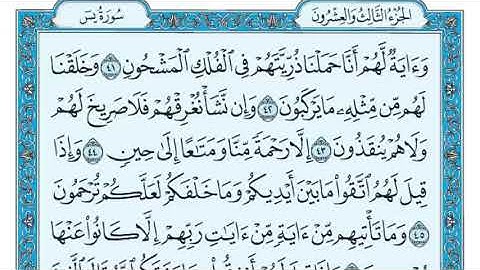 الجزء الثالث والعشرون
سورة يس
وَءَايَةٌ لَّهُمْ أَنَّا حَمَلْنَا ذُرِّيَّتَهُمْ فِي الْفُلْكِ الْمَشْحُونِ ٤١ وَخَلَقْنَا
لَهُم مِّن مِّثْلِهِۦ مَا يَرْكَبُونَ ٤٢ وَإِن نَّشَأْ نُغْرِقْهُمْ فَلَا صَرِيخَ لَهُمْ
وَلَا هُمْ يُنقَذُونَ ٤٣ إِلَّا رَحْمَةً مِّنَّا وَمَتَاعًا إِلَىٰ حِينٍ ٤٤ وَإِذَا
قِيلَ لَهُمُ اتَّقُوا۟ مَا بَيْنَ أَيْدِيكُمْ وَمَا خَلْفَكُمْ لَعَلَّكُمْ تُرْحَمُونَ
٤٥ وَمَا تَأْتِيهِم مِّنْ ءَايَةٍ مِّنْ ءَايَاتِ رَبِّهِمْ إِلَّا كَانُوا۟ عَنْهَا